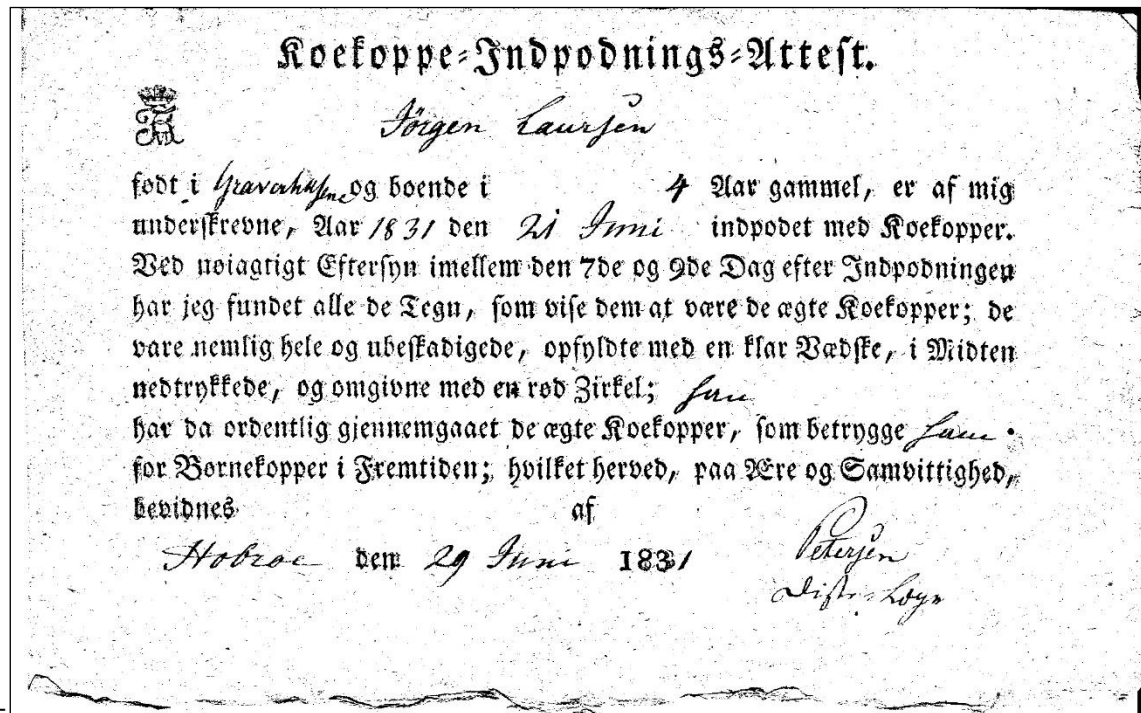 Koekoppe-Indpodnings-Attest.
Jörgen Laursen
født i og boende i 4 Aar gammel, er af mig
underskrevne, Aar 1831 den 21 Juni indpodet med Koekopper.
Ved nøiagtigt Eftersyn imellem den 7de og 9de Dag efter Indpodningen
har jeg fundet alle de Tegn, som vise dem at være de ægte Koekopper; de
vare nemlig hele og ubeskadigede, opfyldte med en klar Vædske, i Midten
nedtrykkede, og omgivne med en rød Zirkel; han
har da ordentlig gjennemgaaet de ægte Koekopper, som betrygge ham
for Børnekopper i Fremtiden; hvilket herved, paa Ære og Samvittighed,
bevidnes af
Hobroe den 29 Juni 1831 Petersen
Distr: Læge